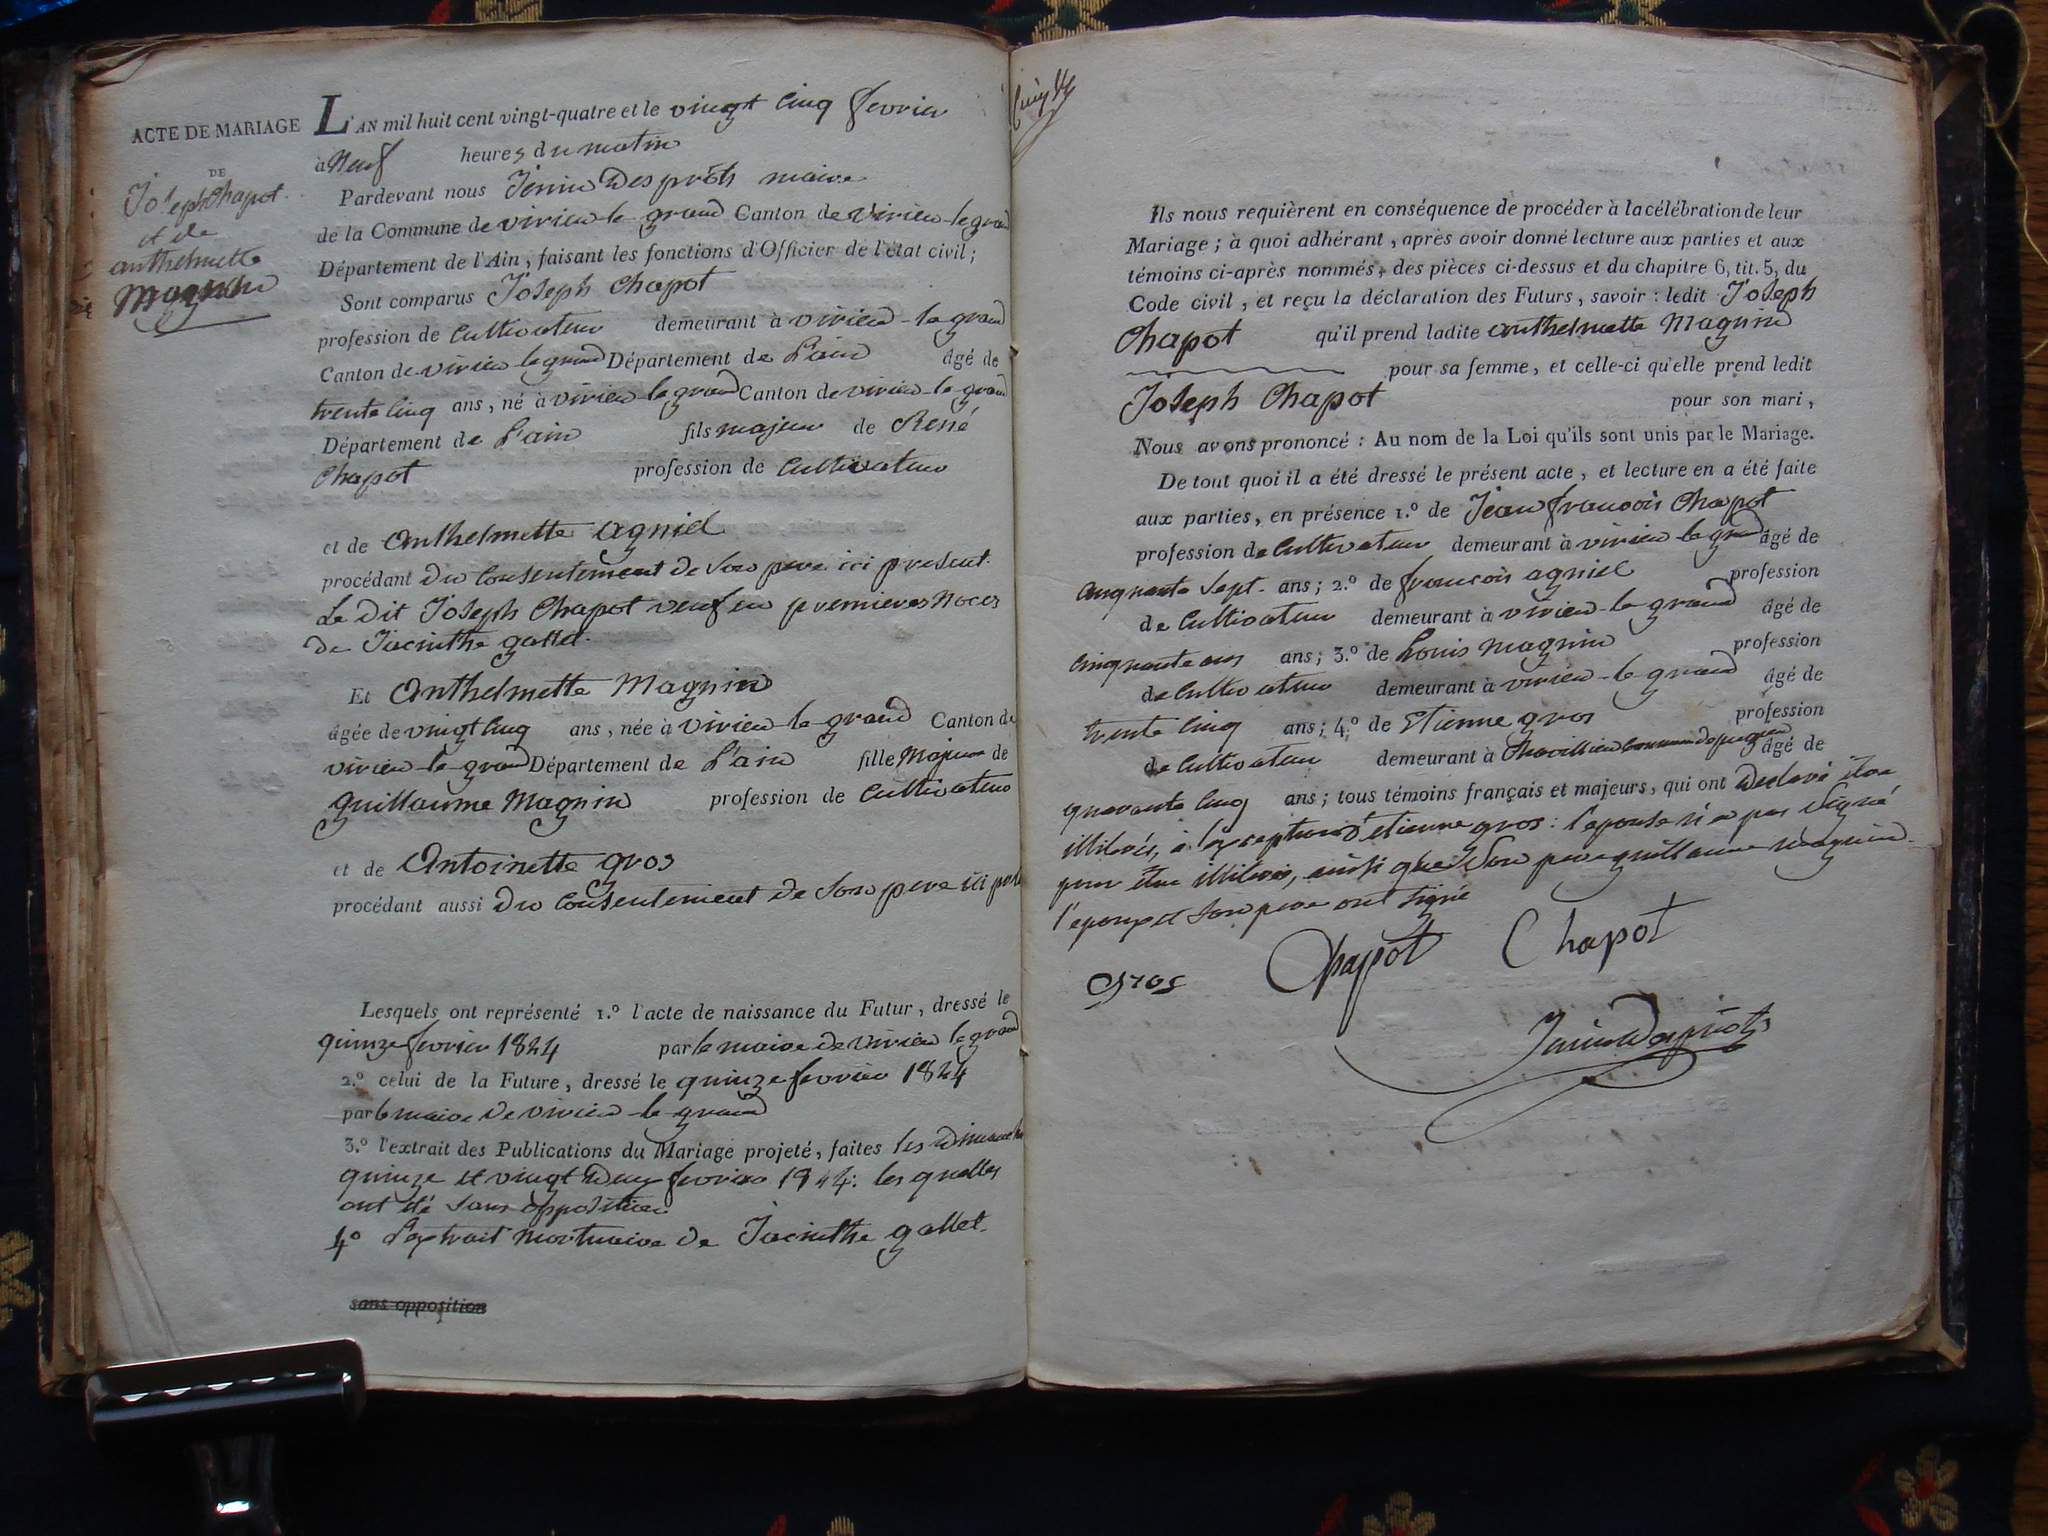 ACTE DE MARIAGE
DE
Joseph Chapot
et de
anthelmette
Magnin
L'AN mil huit cent vingt-quatre et le vingt cinq fevrier
à Neuf heures du matin
Pardevant nous Jenin Desprôts maire
de la Commune de virieu-le-grand Canton de virieu-le-grand
Département de l'Ain, faisant les fonctions d'Officier de l'état civil;
Sont comparus Joseph Chapot
profession de Cultivateur demeurant à virieu-le-grand
Canton de virieu le grand Département de L'ain âgé de
trente Cinq ans, né à virieu-le-grand Canton de virieu-le-grand
Département de L'ain fils majeur de René
Chapot profession de Cultivateur
et de Anthelmette agniel
procédant du Consentement de son pere ici present.
Le dit Joseph Chapot veuf en premieres Noces
de Jacinthe gallet.
Et Anthelmette Magnin
âgée de vingt Cinq ans, née à virieu-le-grand Canton de
virieu-le-grand Département de L'ain fille Majeure de
guillaume Magnin profession de Cultivateur
et de Antoinette gros
procédant aussi du Consentement de son pere ici
Lesquels ont représenté 1.º l'acte de naissance du Futur, dressé le
quinze fevrier 1824 par le maire de virieu le grand
2.º celui de la Future, dressé le quinze fevrier 1824
par le maire de virieu-le-grand
3.º l'extrait des Publications du Mariage projeté, faites les dimanches
quinze et vingt deux fevrier 1824: les quelles
ont été sans opposition
4º L'extrait mortuaire de Jacinthe gallet.
sans opposition
Ils nous requièrent en conséquence de procéder à la célébration de leur
Mariage; à quoi adhérant, après avoir donné lecture aux parties et aux
témoins ci-après nommés, des pièces ci-dessus et du chapitre 6, tit. 5, du
Code civil, et reçu la déclaration des Futurs, savoir: ledit Joseph
Chapot qu'il prend ladite anthelmette Magnin
pour sa femme, et celle-ci qu'elle prend ledit
Joseph Chapot pour son mari,
Nous avons prononcé: Au nom de la Loi qu'ils sont unis par le Mariage.
De tout quoi il a été dressé le présent acte, et lecture en a été faite
aux parties, en présence 1.º de Jean françois Chapot
profession de Cultivateur demeurant à virieu le grand âgé de
cinquante sept ans; 2.º de françois agniel profession
de Cultivateur demeurant à virieu-le-grand âgé de
cinquante ans; 3.º de Louis Magnin profession
de Cultivateur demeurant à virieu-le-grand âgé de
trente Cinq ans; 4.º de Etienne gros profession
de Cultivateur demeurant à Chavillieu Commune de pugieu âgé de
quarante Cinq ans; tous témoins français et majeurs, qui ont declaré être
illiterés, à l'exception d'etienne gros: l'epouse n'a pas signé
pour être illiterée, ainsi que son pere guillaume magnin.
l'epoux et son pere ont signé
Gros Chapot Chapot
Jenin Desprôts